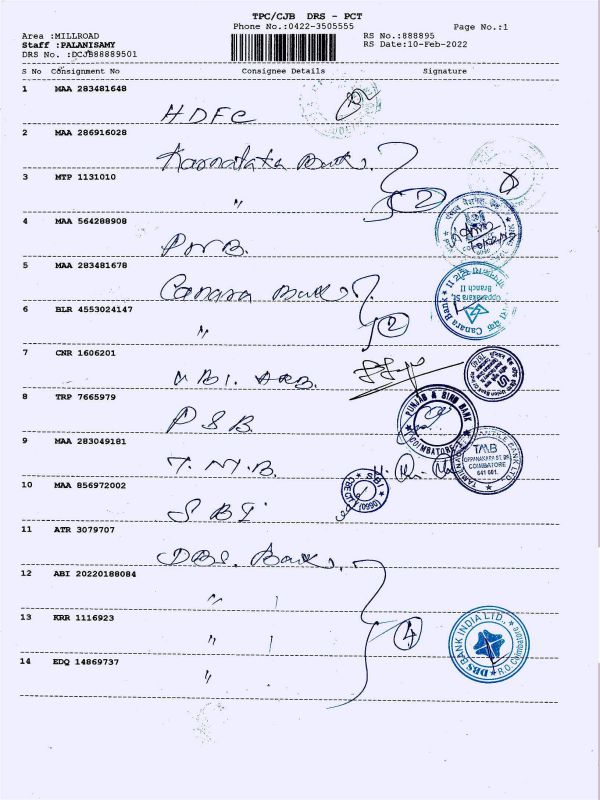 TPC/CJB DRS - PCT
Phone No.:0422-3505555
Page No.:1
Area :MILLROAD
RS No.:888895
Staff :PALANISAMY
RS Date:10-Feb-2022
DRS No. :DCJB88889501
S No Consignment No Consignee Details Signature
1 MAA 283481648
HDFC
2 MAA 286916028
Karnataka Bank.
3 MTP 1131010
〃 2
4 MAA 564288908
PNB.
5 MAA 283481678
Canara Bank
Canara Bank
Oppanakara St.
Branch II
6 BLR 4553024147
〃 2
7 CNR 1606201
UBI. ARB.
8 TRP 7665979
PSB.
PUNJAB & SIND BANK
COIMBATORE
9 MAA 283049181
T.M.B.
TMB
OPPANAKARA ST,
COIMBATORE
641 001.
10 MAA 856972002
SBI
SBI
11 ATR 3079707
DBS. Bank.
12 ABI 20220188084
〃
13 KRR 1116923
〃 4
DBS BANK INDIA LTD.
R.O. Coimbatore
14 EDQ 14869737
〃